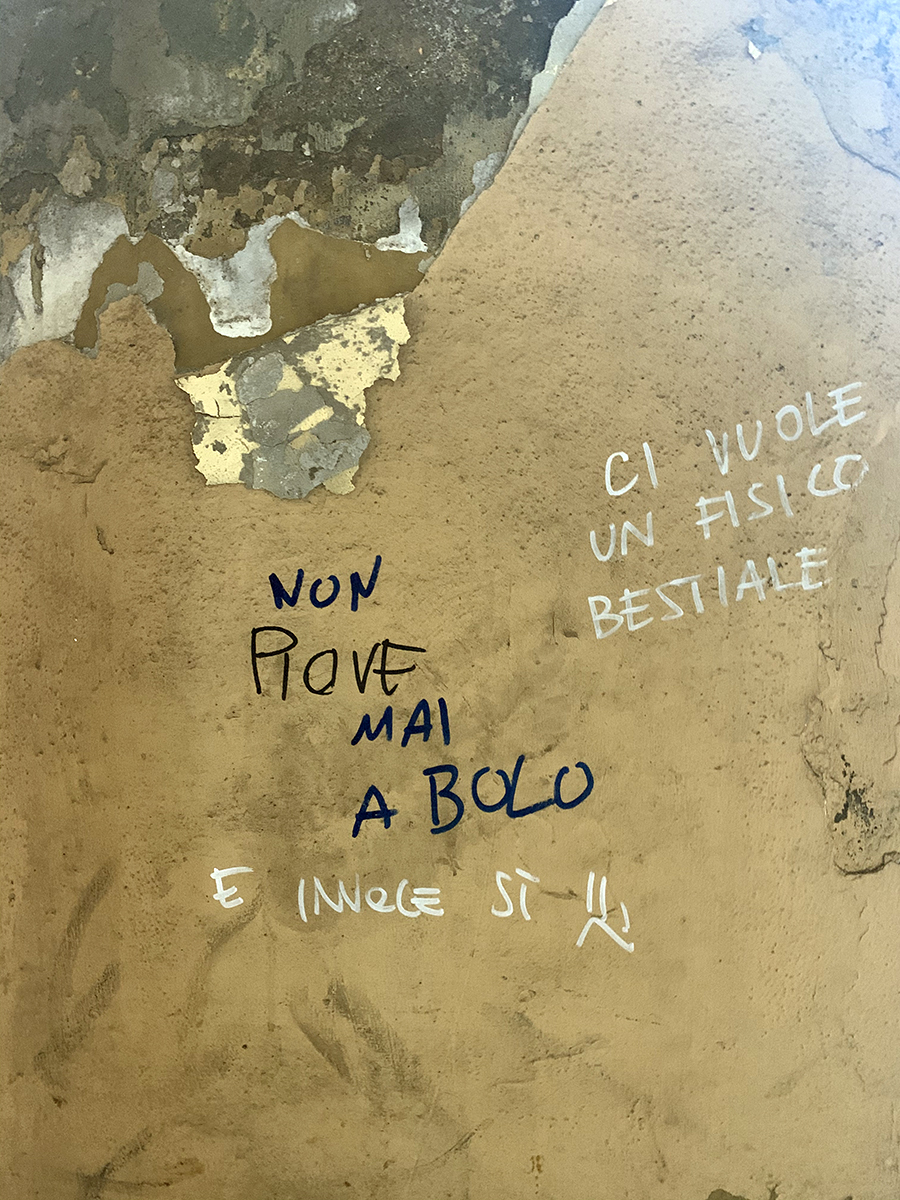 CI VUOLE
UN FISICO
BESTIALE
NON
PIOVE
MAI
A BOLO
E INVECE SÌ !!